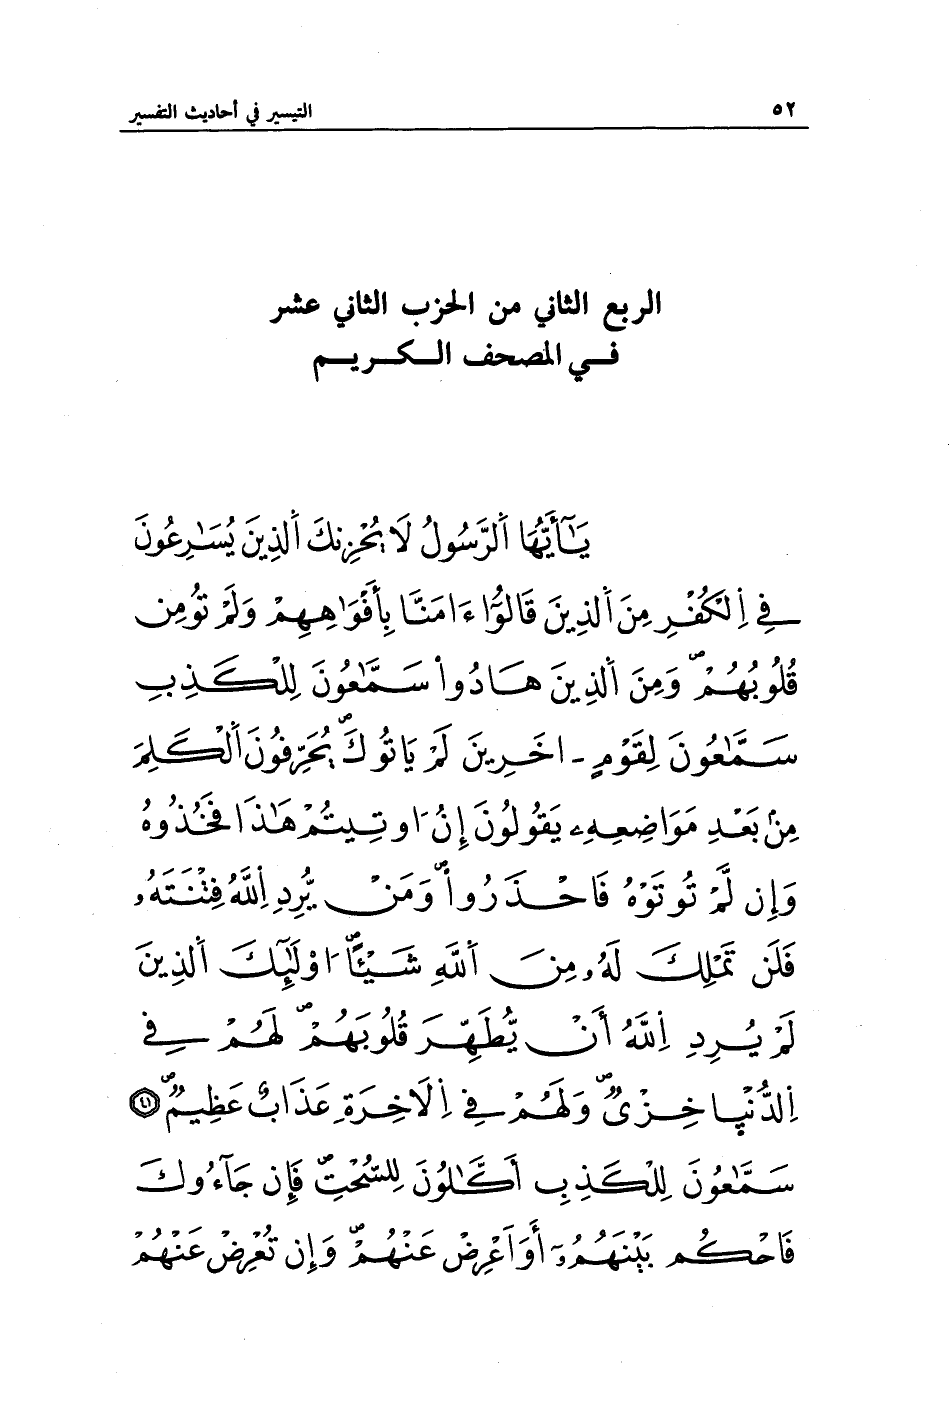 ٥٢
التيسير في أحاديث التفسير
الربع الثاني من الحزب الثاني عشر
في المصحف الكريم
يَـٰٓأَيُّهَا اَ۬لرَّسُولُ لَا يُحْزِنكَ اَ۬لذِينَ يُسَـٰرِعُونَ
فِے اِ۬لْكُفْرِ مِنَ اَ۬لذِينَ قَالُوٓاْ ءَامَنَّا بِأَفْوَٰهِهِمْ وَلَمْ تُومِن
قُلُوبُهُمْۖ وَمِنَ اَ۬لذِينَ هَادُواْ سَمَّـٰعُونَ لِلْكَذِبِ
سَمَّـٰعُونَ لِقَوْمٍ ـ اخَرِينَ لَمْ يَاتُوكَۖ يُحَرِّفُونَ اَ۬لْكَلِمَ
مِنۢ بَعْدِ مَوَاضِعِهِۦ يَقُولُونَ إِنُ اوتِيتُمْ هَـٰذَا فَخُذُوهُ
وَإِن لَّمْ تُوتَوْهُ فَاحْذَرُواْۖ وَمَنْ يُّرِدِ اِ۬للَّهُ فِتْنَتَهُۥ
فَلَن تَمْلِكَ لَهُۥ مِنَ اَ۬للَّهِ شَيْـًٔاۖ ا۟وْلَـٰٓئِكَ اَ۬لذِينَ
لَمْ يُرِدِ اِ۬للَّهُ أَنْ يُّطَهِّرَ قُلُوبَهُمْۖ لَهُمْ فِے
اِ۬لدُّنْيَا خِزْيٌۖ وَلَهُمْ فِے اِ۬لَاخِرَةِ عَذَابٌ عَظِيمٌۖ ٤١
سَمَّـٰعُونَ لِلْكَذِبِ أَكَّـٰلُونَ لِلسُّحْتِۖ فَإِن جَآءُوكَ
فَاحْكُم بَيْنَهُمُۥٓ أَوَ اَعْرِضْ عَنْهُمْۖ وَإِن تُعْرِضْ عَنْهُمْ